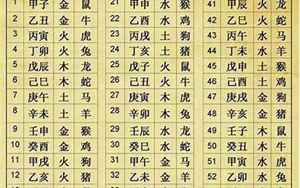 1 甲子 金 鼠 21 甲申 水 猴 41 甲辰 火 龙
2 乙丑 金 牛 22 乙酉 水 鸡 42 乙巳 火 蛇
3 丙寅 火 虎 23 丙戌 土 狗 43 丙午 水 马
4 丁卯 火 兔 24 丁亥 土 猪 44 丁未 水 羊
5 戊辰 木 龙 25 戊子 火 鼠 45 戊申 土 猴
6 己巳 木 蛇 26 己丑 火 牛 46 己酉 土 鸡
7 庚午 土 马 27 庚寅 木 虎 47 庚戌 金 狗
8 辛未 土 羊 28 辛卯 木 兔 48 辛亥 金 猪
9 壬申 金 猴 29 壬辰 水 龙 49 壬子 木 鼠
10 癸酉 金 鸡 30 癸巳 水 蛇 50 癸丑 木 牛
11 甲戌 火 狗 31 甲午 金 马 51 甲寅 水 虎
12 乙亥 火 猪 32 乙未 金 羊 52 乙卯 水 兔